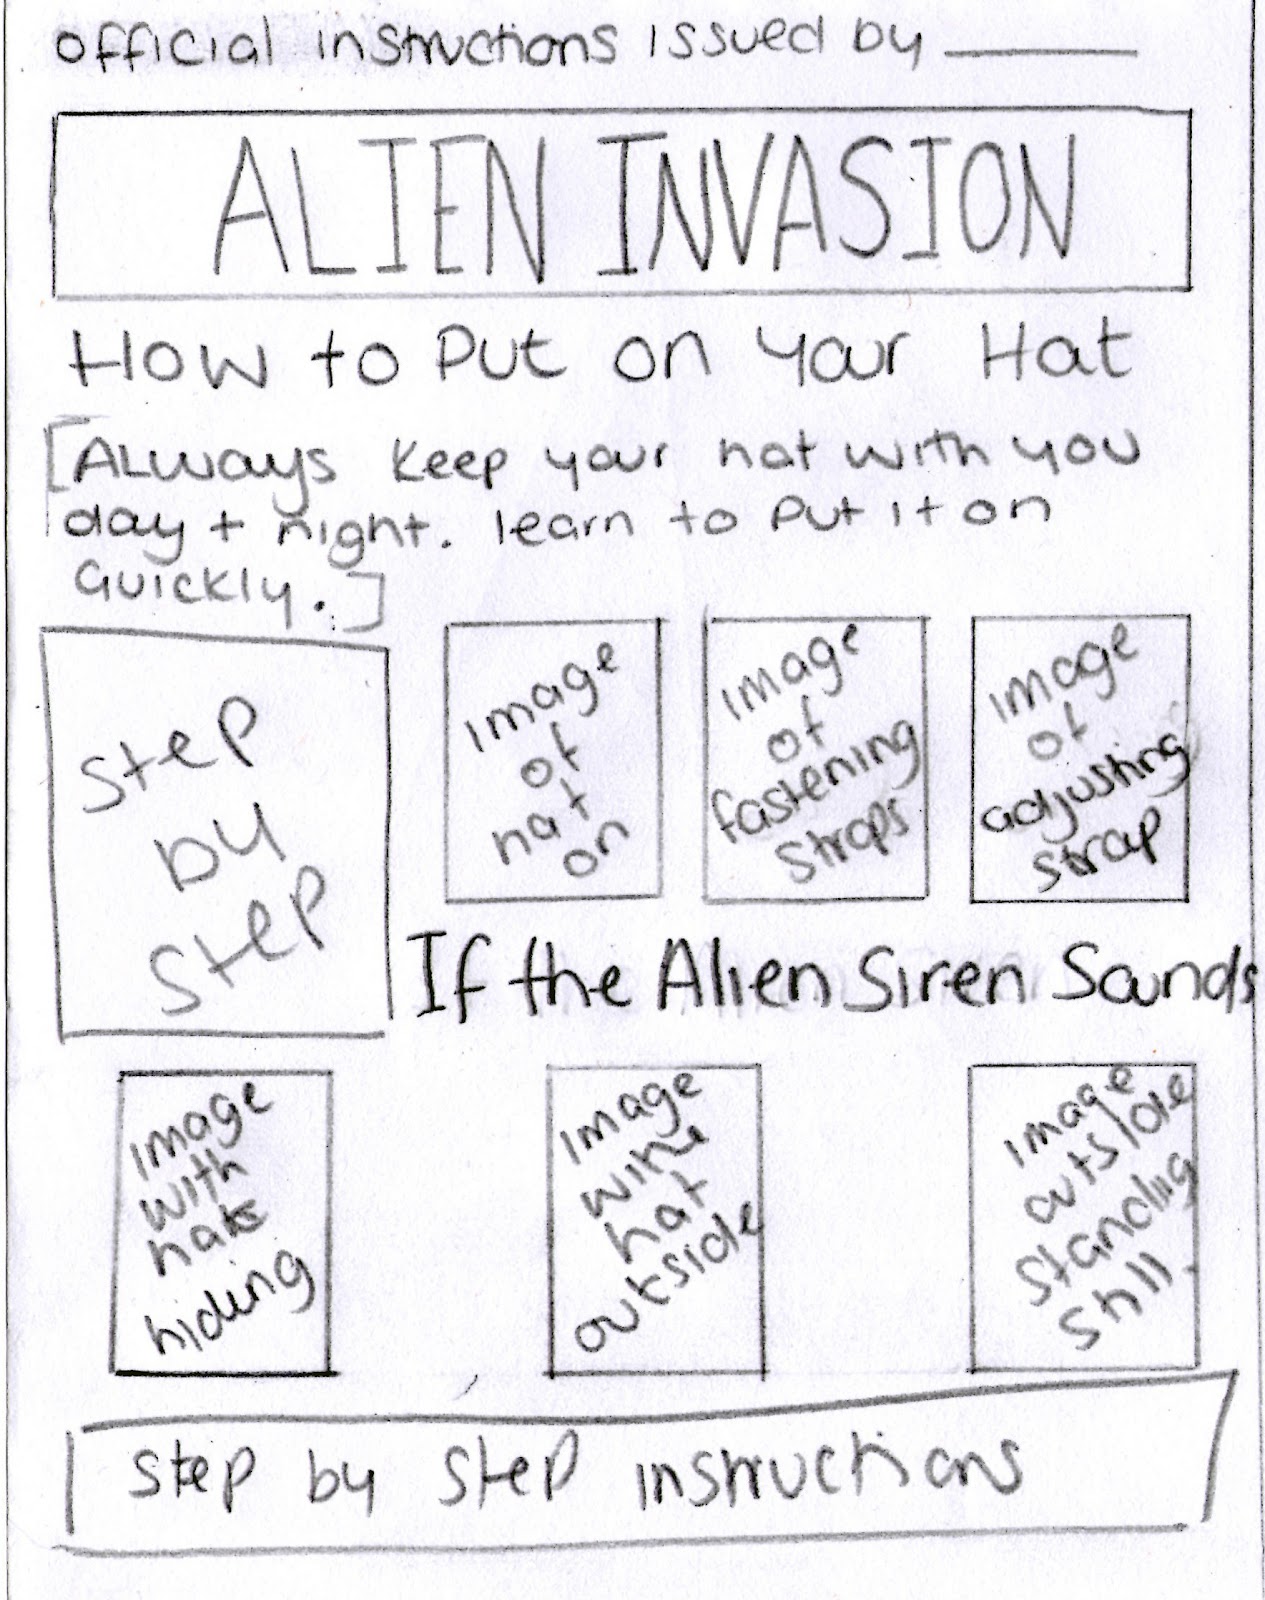 official instructions issued by
ALIEN INVASION
How to Put on Your Hat
[ALways keep your hat with you
day + night. learn to Put it on
Quickly.]
Step
by
Step
image
of
hat
on
image
of
fastening
straps
image
of
adjusting
strap
If the Alien Siren Sounds
image
with
hats
hiding
image
hat
outside
image
outside
standing
still.
Step by Step instructions